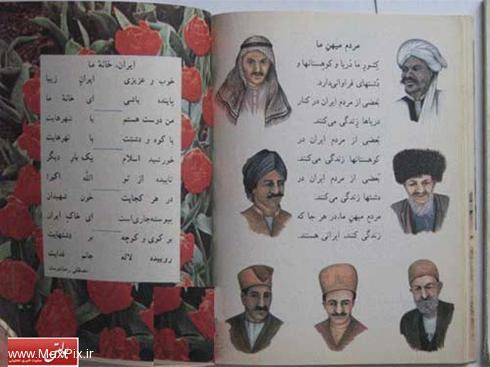 مردم میهن ما
کشور ما دریا و کوهستانها و
دشتهای فراوانی دارد.
بعضی از مردم ایران در کنار
دریاها زندگی می‌کنند.
بعضی از مردم ایران در
کوهستانها زندگی می‌کنند.
بعضی از مردم ایران در
دشتها زندگی می‌کنند.
مردم میهن ما، در هر جا که
زندگی کنند، ایرانی هستند.
ایران، خانهٔ ما
خوب و عزیزی ایران زیبا
پاینده باشی ای خانهٔ ما
من دوست هستم با شهرهایت
با کوه و دشتت با نهرهایت
خورشید اسلام یک بار دیگر
تابیده از تو الله اکبر!
در هر کجایت خون شهیدان
پیوسته جاری است ای خاک ایران
بر کوی و کوچه بر دشتهایت
روییده لاله جانم فدایت
مصطفی رحماندوست
www.MexPix.ir